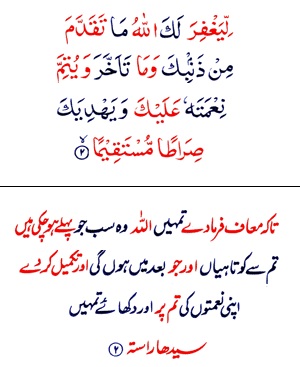 لِّيَغْفِرَ لَكَ اللّٰهُ مَا تَقَدَّمَ
مِنْ ذَنْۢبِكَ وَمَا تَاَخَّرَ وَ يُتِمَّ
نِعْمَتَهٗ عَلَيْكَ وَ يَهْدِيَكَ
صِرَاطًا مُّسْتَقِيْمًا ۙ﴿۲﴾
تاکہ معاف فرمادے تمہیں اللہ وہ سب جو پہلے ہوچکی ہیں
تم سے کوتاہیاں اور جو بعد میں ہوں گی اور تکمیل کر دے
اپنی نعمتوں کی تم پر اور دکھائے تمہیں
سیدھا راستہ ﴿۲﴾